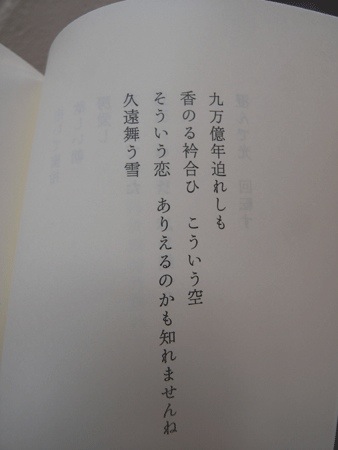 九万億年迫れしも
香のる衿合ひ　こういう空
そういう恋 ありえるのかも知れませんね
久遠舞う雪